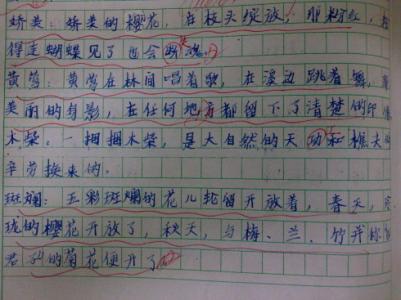 娇美：娇美的樱花，在枝头绽放，那粉红，
得连蝴蝶见了也会断魂。
黄莺：黄莺在林间唱着歌，在溪边跳着舞，
美丽的身影，在任何地方都留下了清楚的印
木柴：一捆捆木柴，是大自然的天 和樵夫
辛劳换来的。
斑斓：五彩斑斓的花儿轮留开放着，春天，
珑的樱花开放了，秋天，与梅、兰、竹并称
君子的菊花便开了